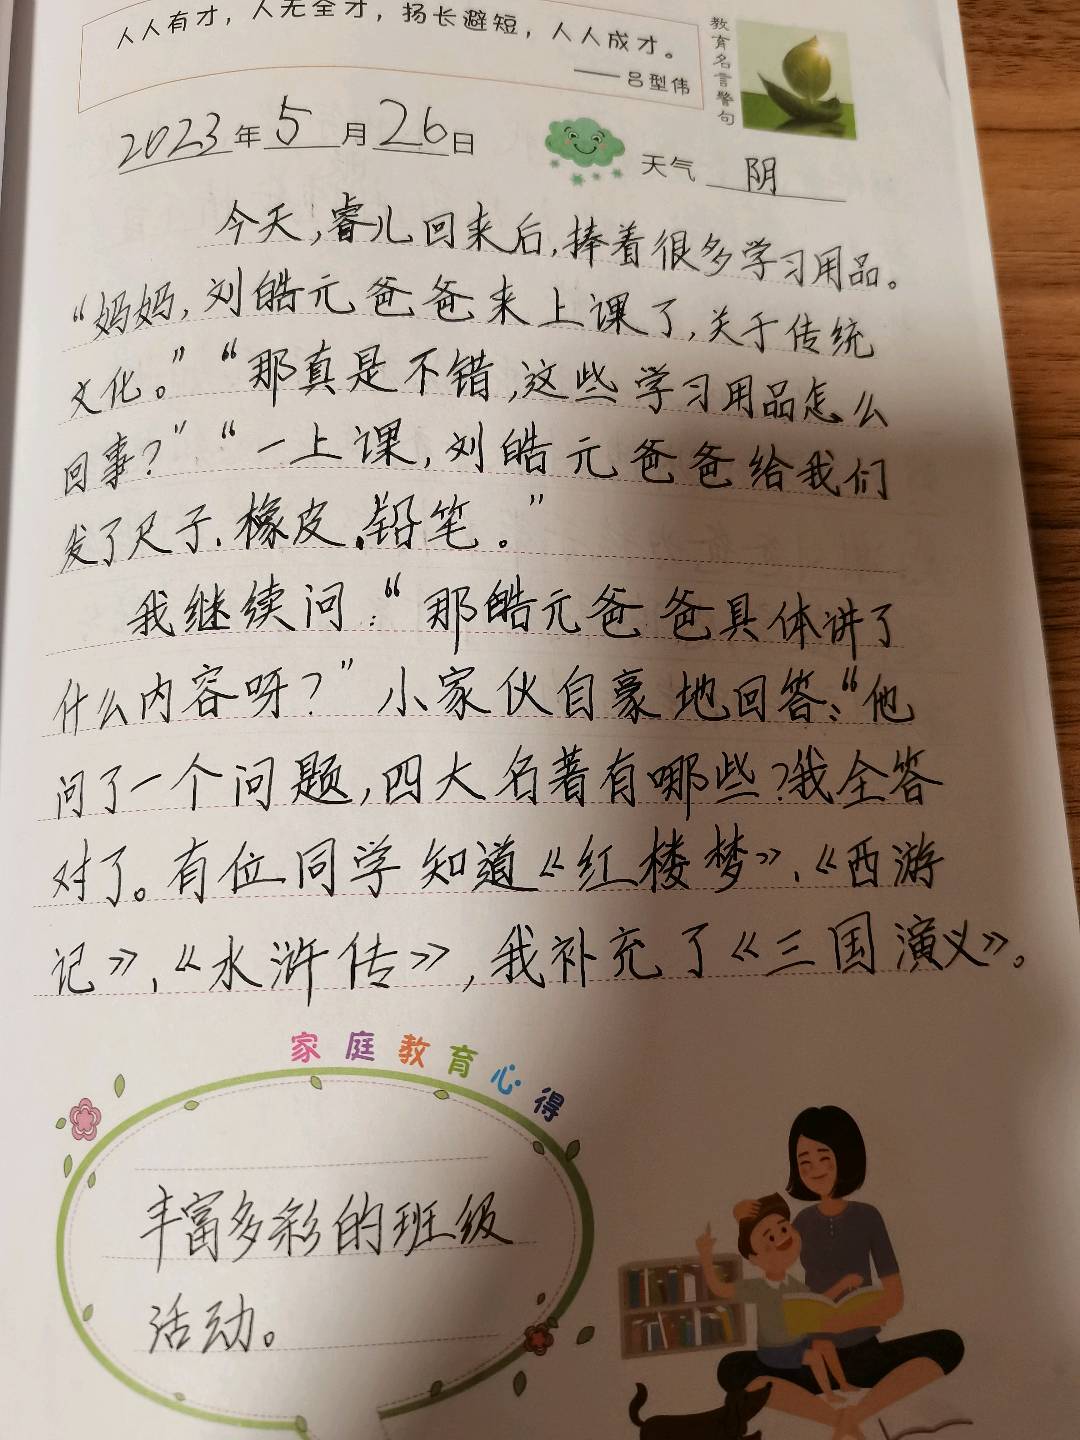 人人有才，人无全才，扬长避短，人人成才。
——吕型伟
教育名言警句
2023年5月26日
天气 阴
今天,睿儿回来后,捧着很多学习用品。
“妈妈,刘皓元爸爸来上课了,关于传统
文化。”“那真是不错,这些学习用品怎么
回事?”“一上课,刘皓元爸爸给我们
发了尺子、橡皮、铅笔。”
我继续问:“那皓元爸爸具体讲了
什么内容呀?”小家伙自豪地回答:“他
问了一个问题,四大名著有哪些?我全答
对了。有位同学知道《红楼梦》、《西游
记》、《水浒传》,我补充了《三国演义》。
家庭教育心得
丰富多彩的班级
活动。